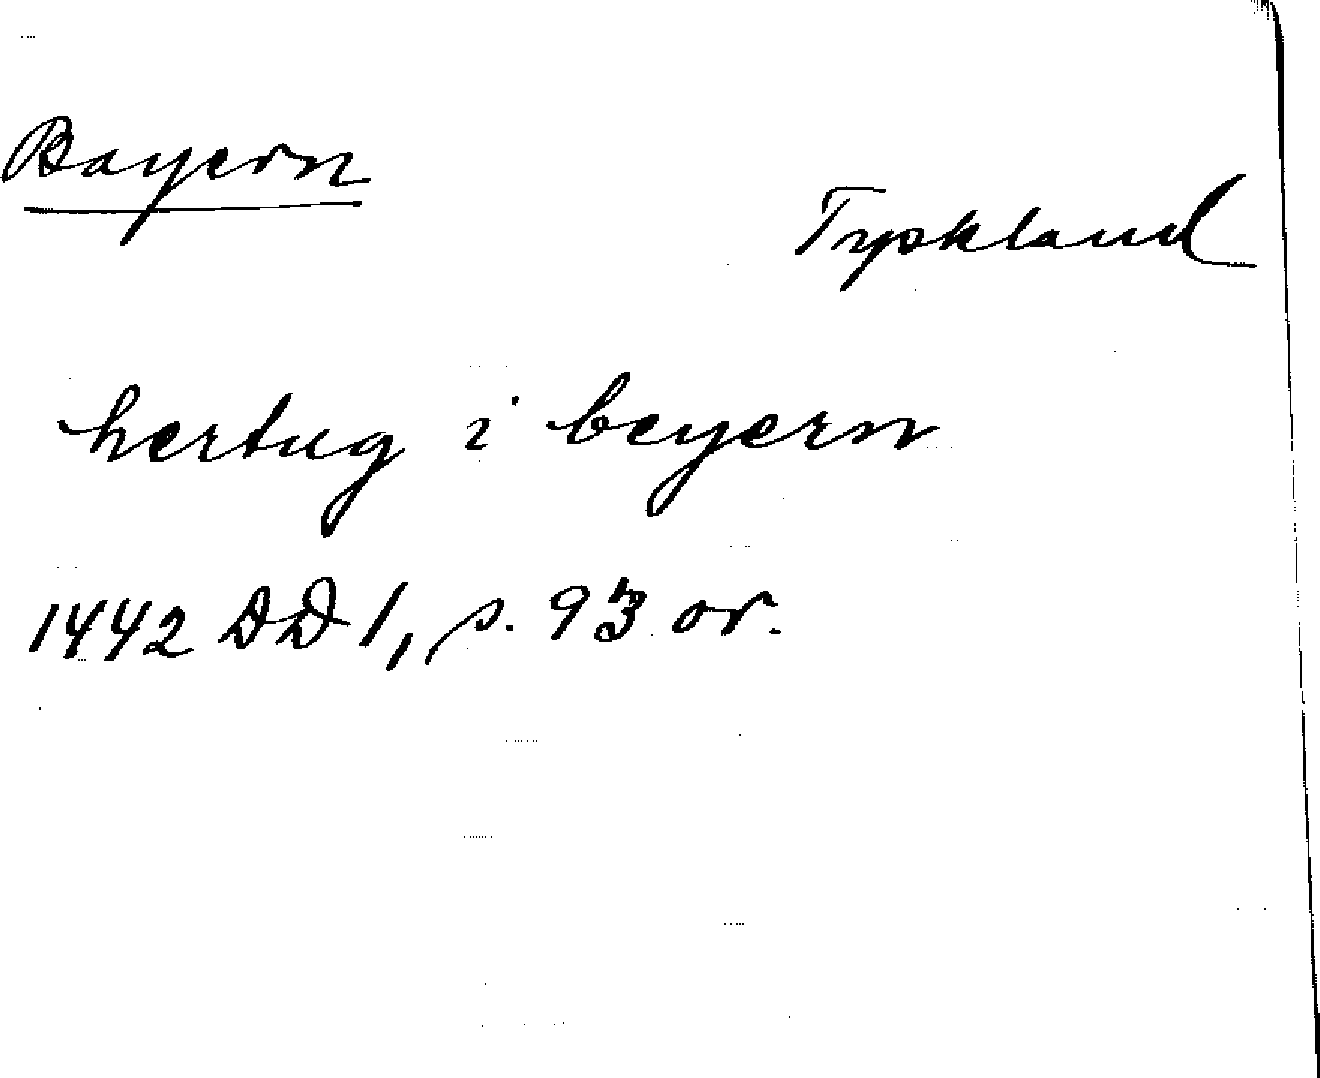 Bayern
Tyskland
hertug i beyern
1442 DD 1, s. 93 or.